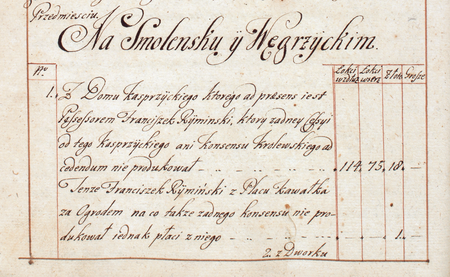 Przedmiesciu.
Na Smolensku ÿ Węgrzyckim.
Nro Łokci wzdłuż Łokci wszerz Złote Grosze
1. Z Domu Kasprzyckiego ktorego ad præsens iest
Possessorem Franciszek Rÿminski, ktory zadney Cessÿi
od tego Kasprzyckiego ani Konsensu Krolewskiego ad
cedendum nie produkował 114. 75. 18. —
Tenze Franciszek Rÿmiński z Placu kawałka
za Ogrodem na co takze zadnego konsensu nie pro-
dukował iednak płaci z niego 1. —
2. z Dworku